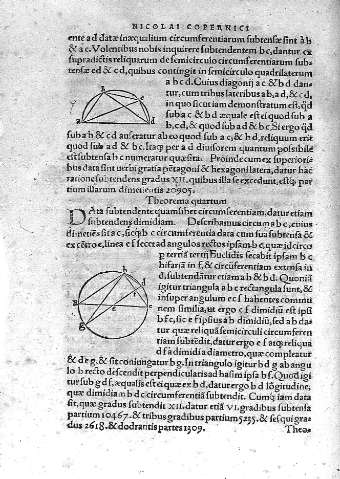 NICOLAI COPERNICI
ente a d datæ inæqualium circumferentiarum subtensæ sint à b
& a c. Volentibus nobis inquirere subtendentem b c, dantur ex
supradictis reliquarum de semicirculo circumferentiarum sub-
tensæ & c d, quibus contingit in semicirculo quadrilaterum
a b c d. Cuius diagonij a c & b d dan
tur, cum tribus lateribus a b, a d, & c d,
in quo sicut iam demonstratum est: quod
sub a c & b d æquale est ei quod sub a
b, c d, & quod sub a d & b c. Si ergo quod
sub a b & c d auferatur ab eo quod sub a c, & b d, reliquum erit
quod sub a d & b c. Itaque per a d diuisorem quantum possibile
est subtensa b c numeratur quæsita. Proinde cum ex superiori-
bus data sint uerbi gratia pentagoni & hexagoni latera, datur hac
ratione subtendens gradus XII. quibus illa se excedunt, estque par-
tium illarum dimetientis 20905.
Theorema quartum
DAta subtendente quamlibet circumferentiam, datur etiam
subtendens dimidiam. Describamus circulum a b c, cuius
dimetiens sit a c, sitque b c circumferentia data cum sua subtensa &
ex centro e, linea e f secet ad angulos rectos ipsam b c, quæ idcirco
per tertiam tertij Euclidis secabit ipsam b c
bifariam in f, & circumferentiam extensa in
d, subtendantur etiam a b & b d. Quoniam
igitur triangula a b c rectangula sunt, &
insuper angulum e c f habentes commu-
nem similia, ut ergo c f dimidium est ipsius
b f c, sic e f ipsius a b dimidium, sed a b da-
tur quæ reliquam semicirculi circumferen-
tiam subtendit, datur ergo e f atque reliqua
d f a dimidia diametro, quæ compleatur
& d e g, & sit coniungatur b g. In triangulo igitur b d g ab angu-
lo b recto descendit perpendicularis ad basim ipsa b f. Quod igi-
tur sub g d f, æquale est ei quod ex b d, datur ergo b d longitudine,
quæ dimidiam b d c circumferentiam subtendit. Cumque iam data
sit, quæ gradus subtendit XII. datur etiam VI. gradibus subtensa
partium 10467. & tribus gradibus partium 5235. & sesqui gra-
dus 2618. & dodrantis partes 1309.
Theo-